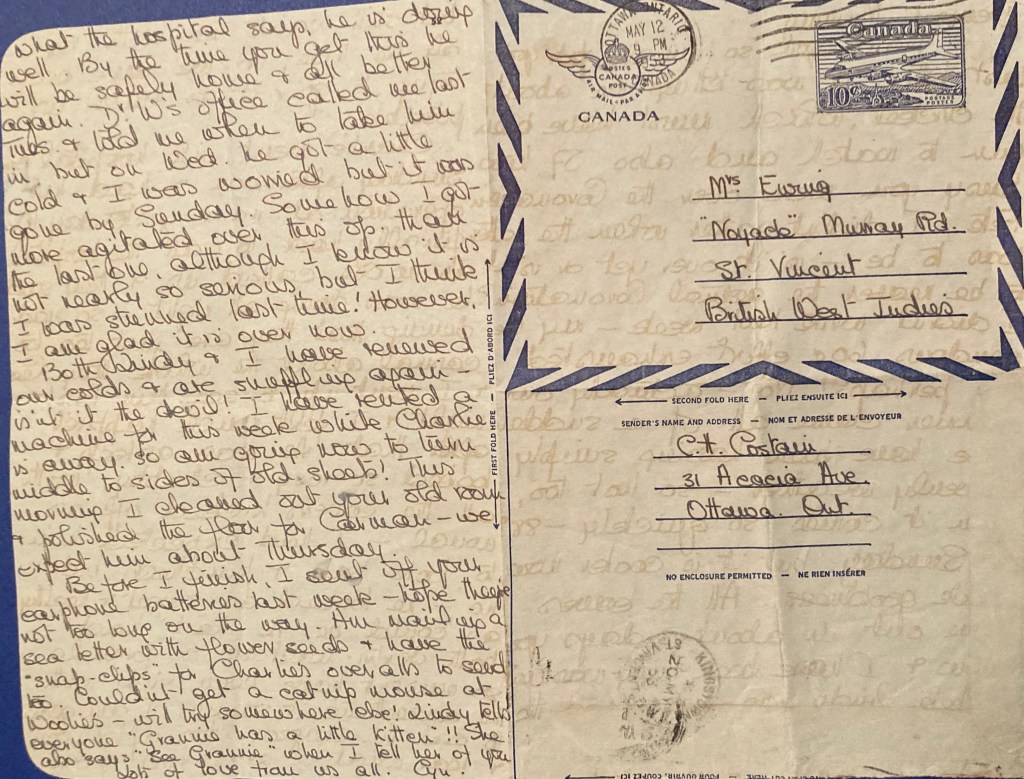 what the hospital says, he is doing
well. By the time you get this he
will be safely home & all better
again. Dr. W's office called me last
Tues. & told me when to take him
in but on Wed. he got a little
cold & I was worried but it was
gone by Sunday. Somehow I got
more agitated over this op. than
the last one, although I know it is
not nearly so serious, but I think
I was stunned last time! However,
I am glad it is over now.
Both Lindy & I have renewed
our colds & are snuffling again –
isn't it the devil! I have rented a
machine for this week while Charlie
is away. so am going now to turn
middle to sides of old sheets! This
morning I cleaned out your old room
& polished the floor for Carman – we
expect him about Thursday.
Before I finish, I sent off your
earphone batteries last week – hope they're
not too long on the way. Am mailing a
sea letter with flower seeds & have the
"snap-clips" for Charlie's overalls to send
too. Couldn't get a catnip mouse at
Woolies – will try somewhere else! Lindy tells
everyone "Grannie has a little kitten"!! She
also says "See Grannie" when I tell her of you
Lots of love from us all. Cyn.
FIRST FOLD HERE — PLIEZ D'ABORD ICI
OTTAWA ONTARIO
MAY 12
9 PM
CANADA
POSTES CANADA POST
AIR MAIL • PAR AVION
CANADA
Canada
10¢
POSTAGE
POSTES
Mrs Ewing
"Nayadé" Murray Rd.
St. Vincent
British West Indies
SECOND FOLD HERE — PLIEZ ENSUITE ICI
SENDER'S NAME AND ADDRESS — NOM ET ADRESSE DE L'ENVOYEUR
C.H. Costain
31 Acacia Ave.
Ottawa. Ont.
NO ENCLOSURE PERMITTED — NE RIEN INSÉRER
KINGSTOWN
ST VINCENT
POUR OUVRIR, COUPEZ ICI